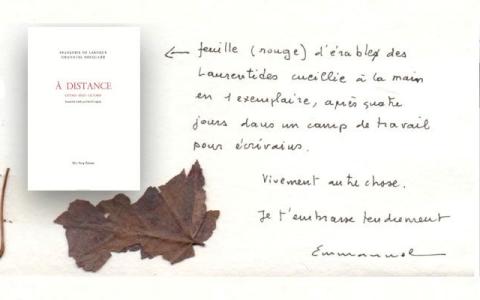 À DISTANCE
← feuille (rouge) d'érables des
Laurentides cueillie à la main
en 1 exemplaire, après quatre
jours dans un camp de travail
pour écrivains.
Vivement autre chose.
Je t'embrasse tendrement
Emmanuel